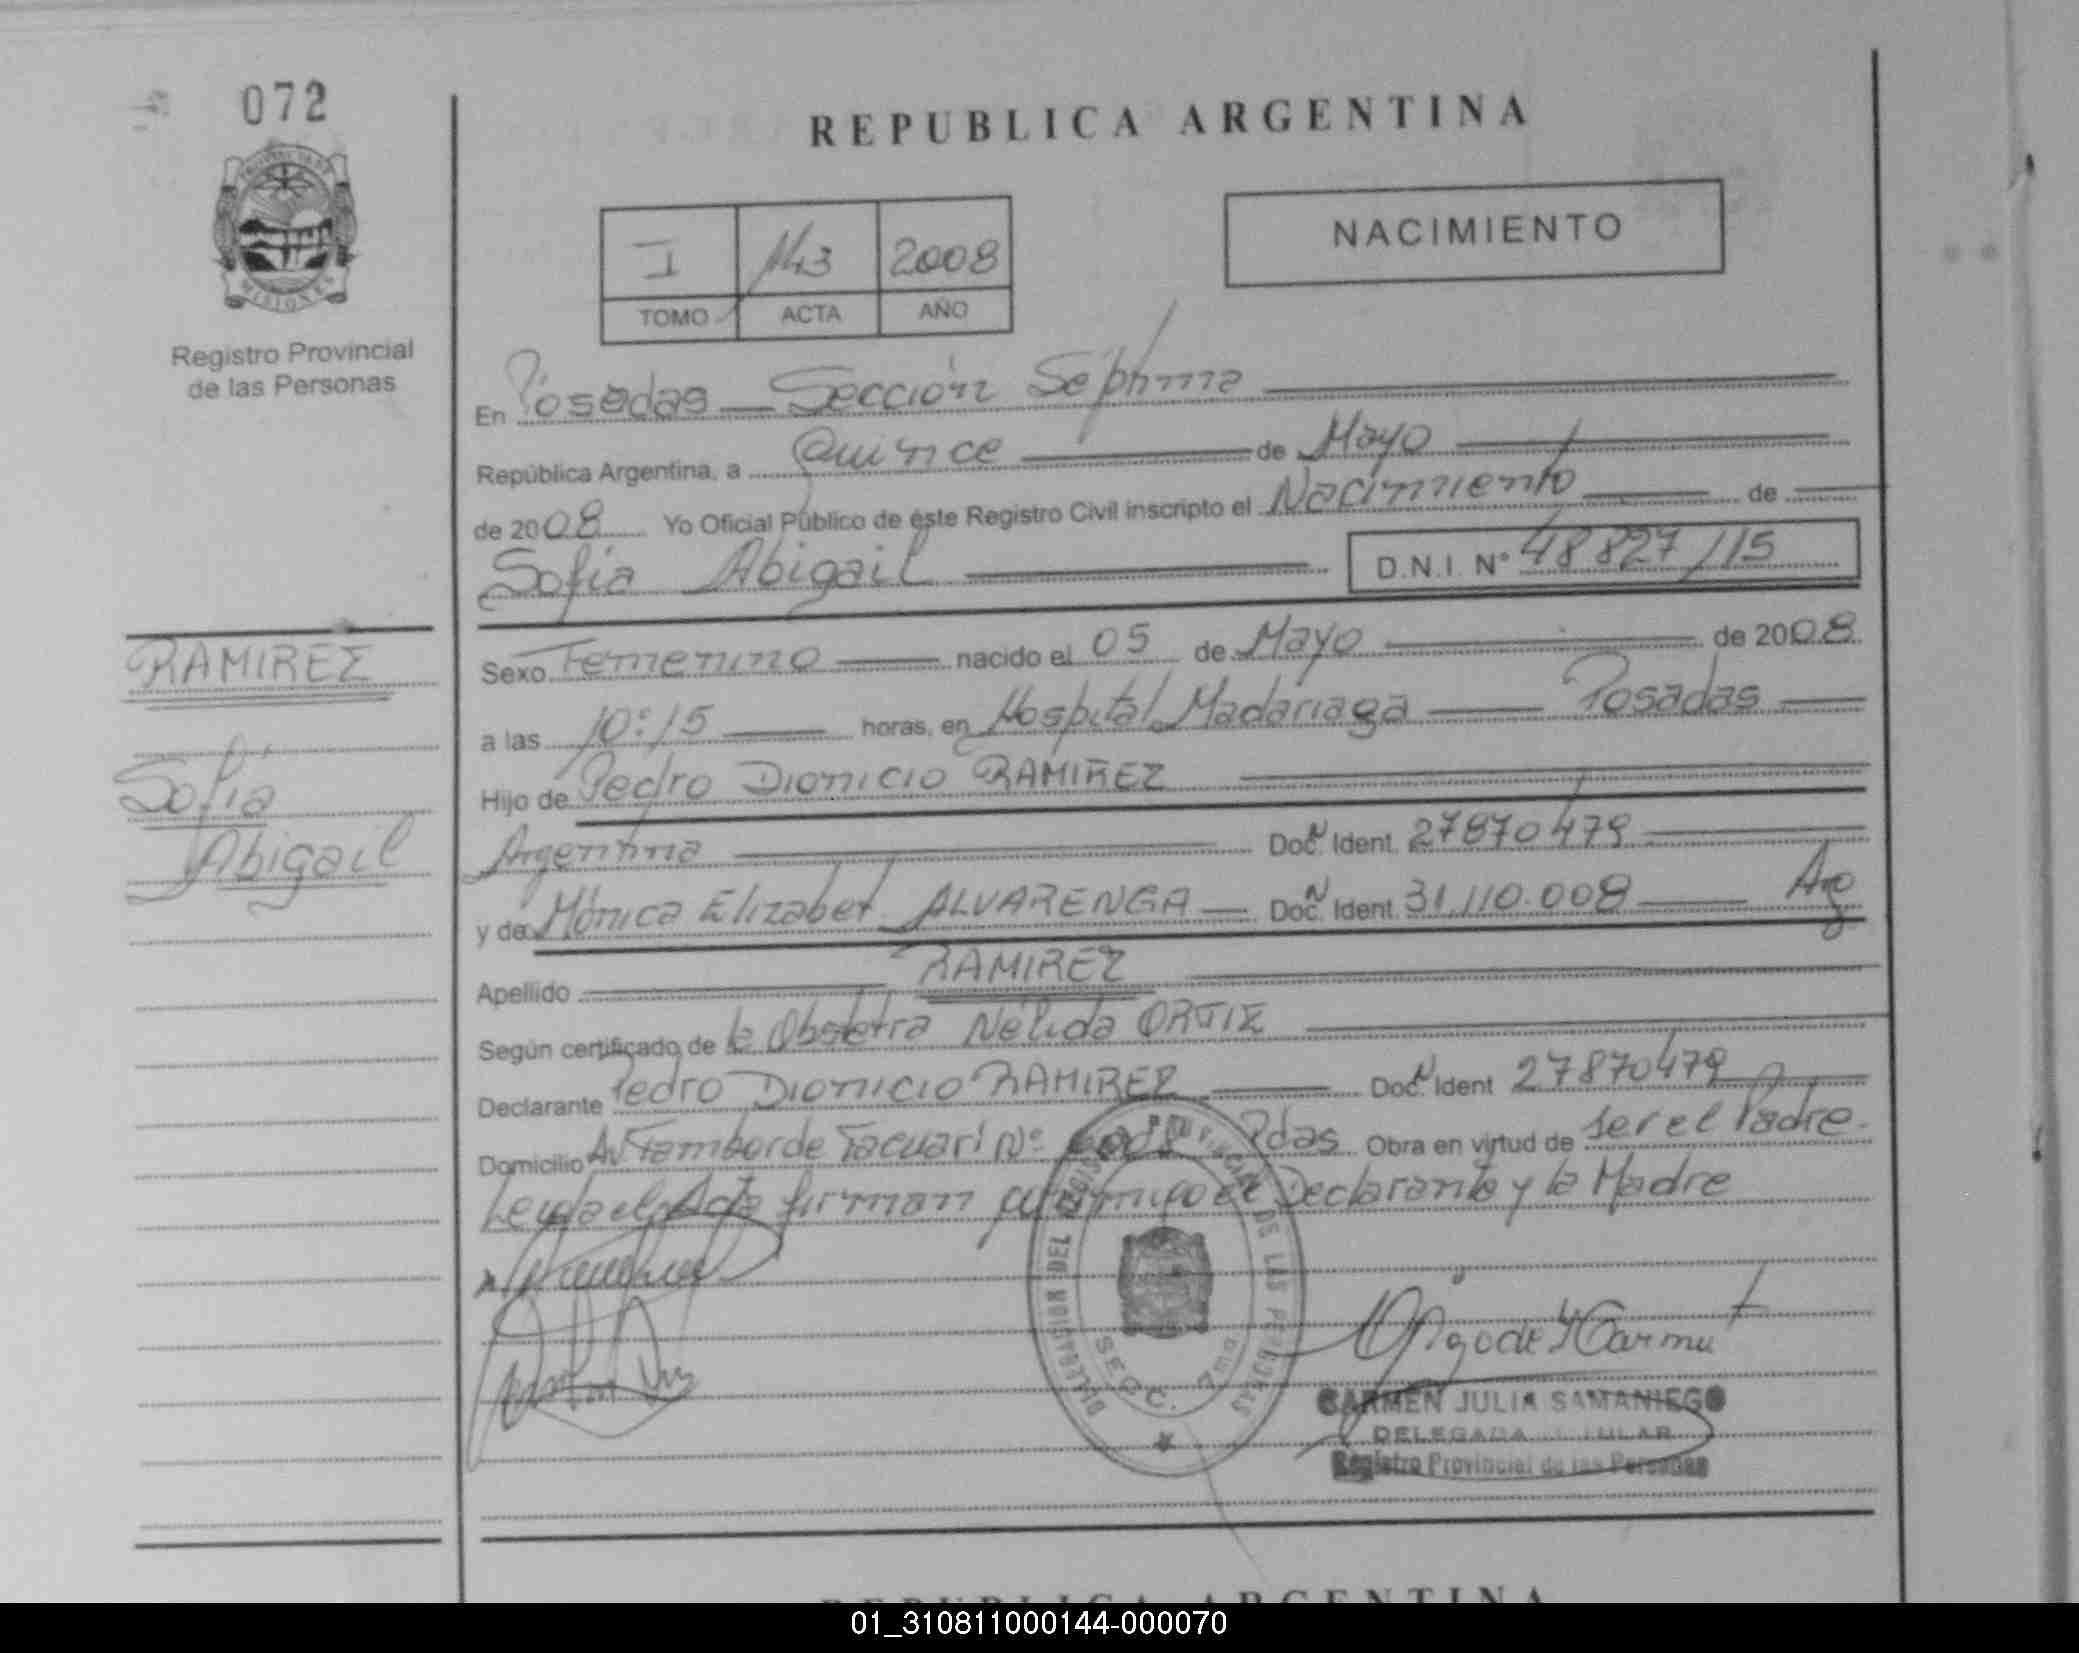 072
REPUBLICA ARGENTINA
MISIONES
Registro Provincial
de las Personas
I 143 2008
TOMO ACTA AÑO
NACIMIENTO
En Posadas Sección Séptima
República Argentina, a Quince de Mayo
de 2008 Yo Oficial Público de éste Registro Civil inscripto el Nacimiento de
Sofía Abigail D.N.I. N° 48827115
RAMIREZ
Sofía
Abigail
Sexo Femenino nacido el 05 de Mayo de 2008
a las 10:15 horas, en Hospital Madariaga Posadas
Hijo de Pedro Dionicio RAMIREZ
Argentina Doc. Ident. 27870479
y de Mónica Elizabet ALVARENGA Doc. Ident. 31.110.008 Arg
Apellido RAMIREZ
Según certificado de la Obstetra Nélida ORTIZ
Declarante Pedro Dionicio RAMIREZ Doc. Ident 27870479
Domicilio Av Tambor de Tacuarí N° Pdas Obra en virtud de ser el Padre.
Leída el Acta firman conmigo el Declarante y la Madre
SECC. 7ma
CARMEN JULIA SAMANIEGO
DELEGADA TITULAR
Registro Provincial de las Personas
REPUBLICA ARGENTINA
01_310811000144-000070